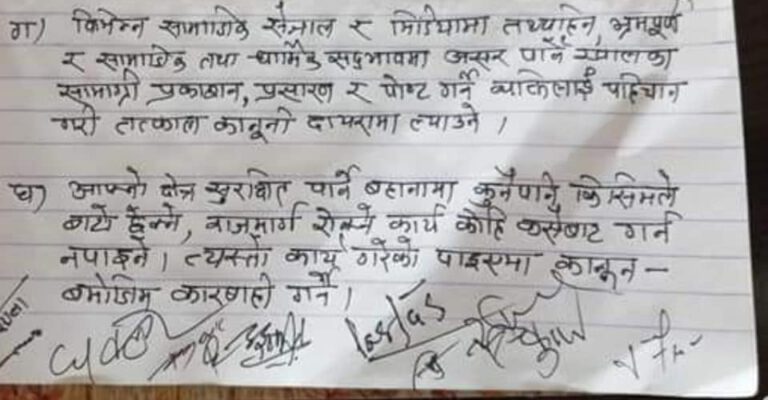 ग) विभिन्न सामाजिक संजाल र मिडियामा तथ्यहिन, भ्रमपूर्ण
र सामाजिक तथा धार्मिक सद्‍भावमा असर पार्ने खालका
सामाग्री प्रकाशन, प्रसारण र पोष्ट गर्ने व्यक्तिलाई पहिचान
गरी तत्काल कानूनी दायरामा ल्याउने ।
घ) आफ्नो क्षेत्र सुरक्षित पार्ने बहानामा कुनैपनि किसिमले
बाटो छेक्ने, राजमार्ग रोक्ने कार्य कोहि कसैबाट गर्न
नपाइने । त्यस्तो कार्य गरेको पाइएमा कानून-
बमोजिम कारबाही गर्ने ।